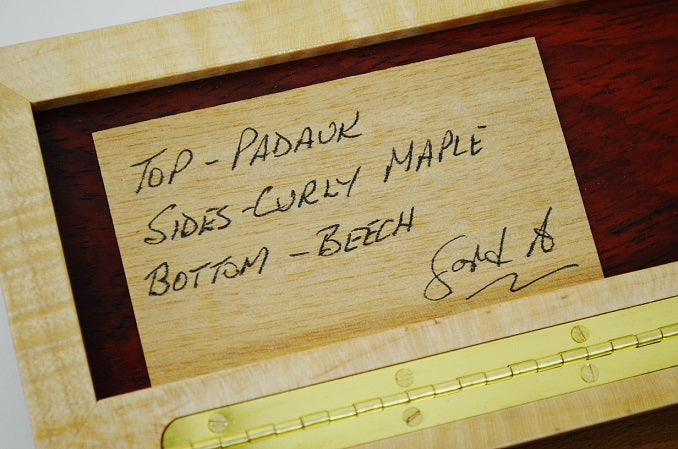 TOP - PADAUK
SIDES - CURLY MAPLE
BOTTOM - BEECH